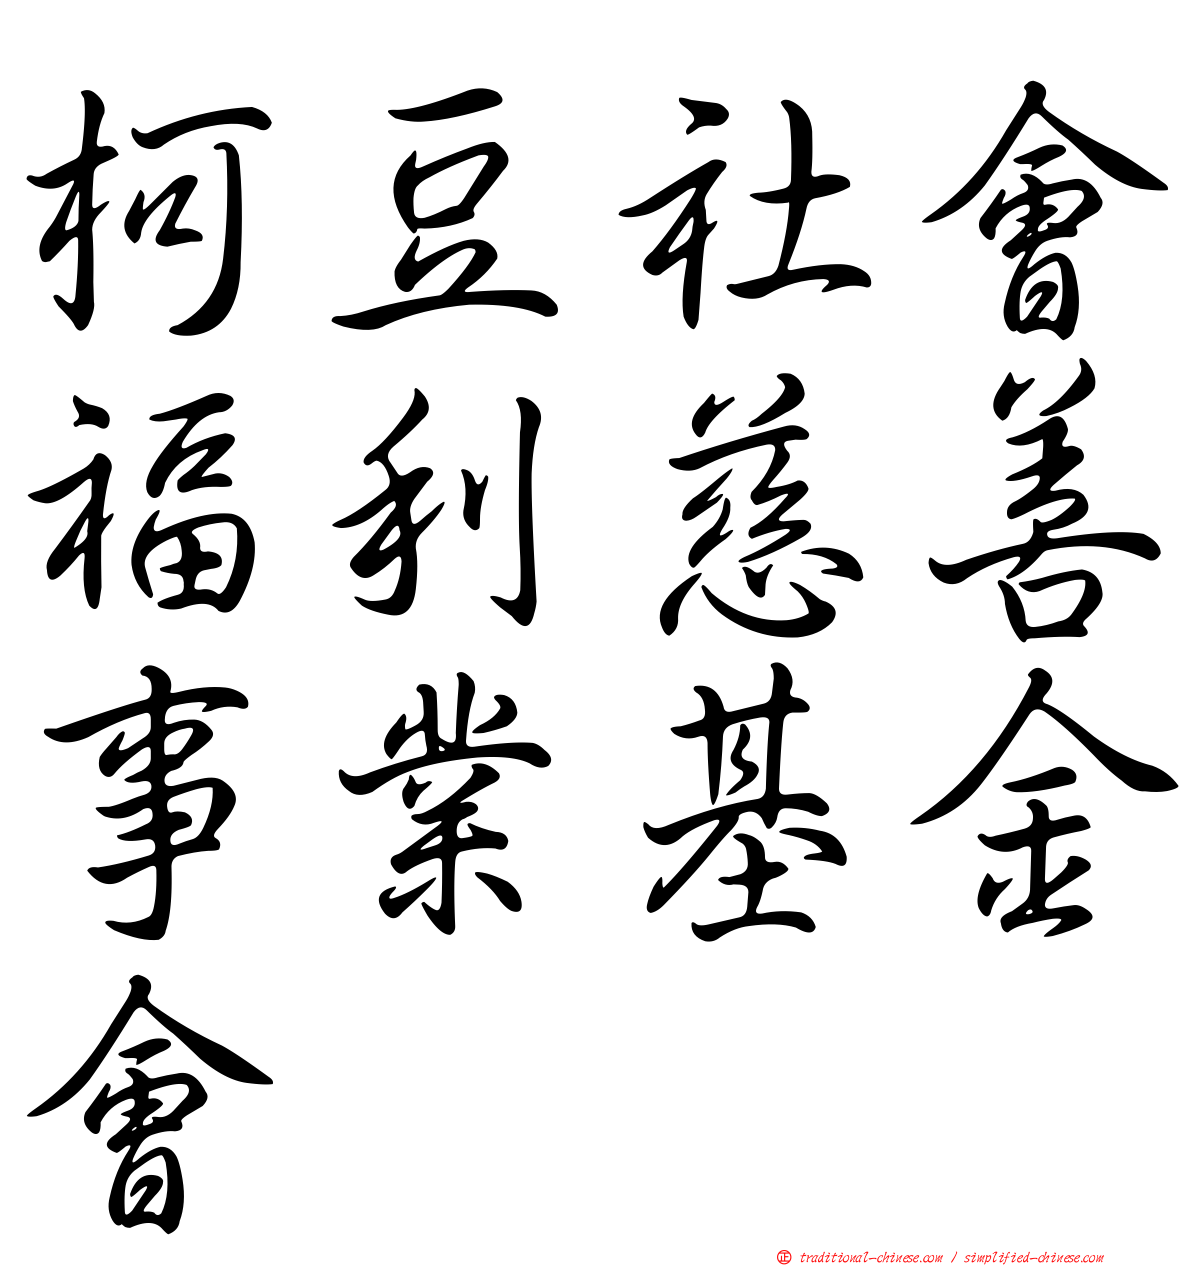 柯豆社會
福利慈善
事業基金
會
正 traditional-chinese.com / simplified-chinese.com